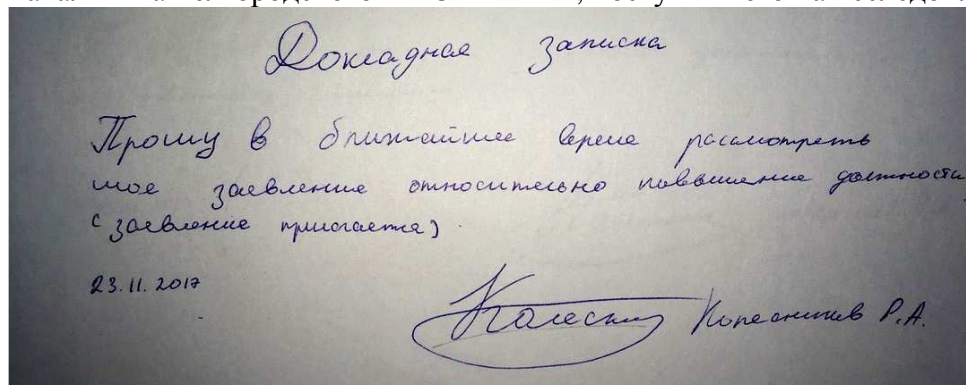 Докладная записка
Прошу в ближайшее время рассмотреть
мое заявление относительно повышение должности
(заявление прилагается)
23.11.2017
Колесников Р.А.